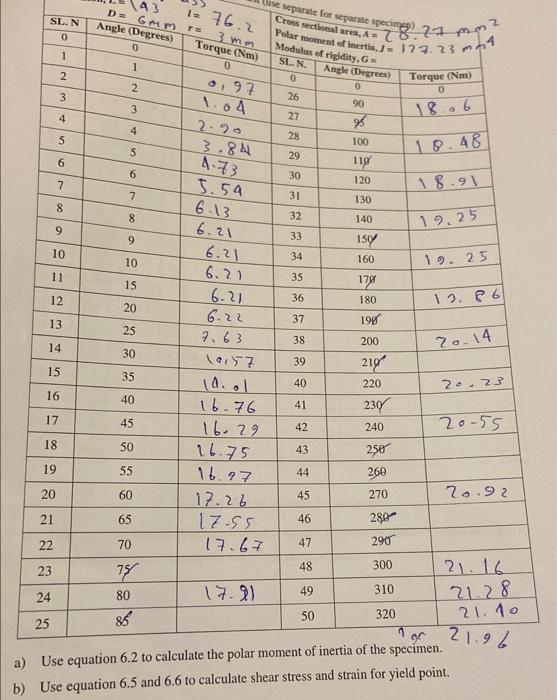 L = 143
(use separate for separate specimen)
D = 6mm
l = 76.2
r = 3 mm
Cross sectional area, A = 28.27 mm²
Polar moment of inertia, J = 127.23 mm⁴
Modulus of rigidity, G =
SL. N Angle (Degrees) Torque (Nm) SL. N. Angle (Degrees) Torque (Nm)
0 0 0 0 0 0
1 1 0,97 26 90 18.06
2 2 1.04 27 95
3 3 2.90 28 100 18.48
4 4 3.84 29 110
5 5 4.73 30 120 18.91
6 6 5.54 31 130
7 7 6.13 32 140 19.25
8 8 6.21 33 150
9 9 6.21 34 160 19.25
10 10 6.21 35 170
11 15 6.21 36 180 19.86
12 20 6.22 37 190
13 25 7.63 38 200 20.14
14 30 10,57 39 210
15 35 40 220 20.23
16 40 16.76 41 230
17 45 16.29 42 240 20-55
18 50 16.75 43 250
19 55 16.97 44 260
20 60 17.26 45 270 20.92
21 65 17.55 46 280
22 70 17.67 47 290
23 75 48 300 21.16
24 80 17.91 49 310 21.28
25 85 50 320 21.40
21.96
a) Use equation 6.2 to calculate the polar moment of inertia of the specimen.
b) Use equation 6.5 and 6.6 to calculate shear stress and strain for yield point.